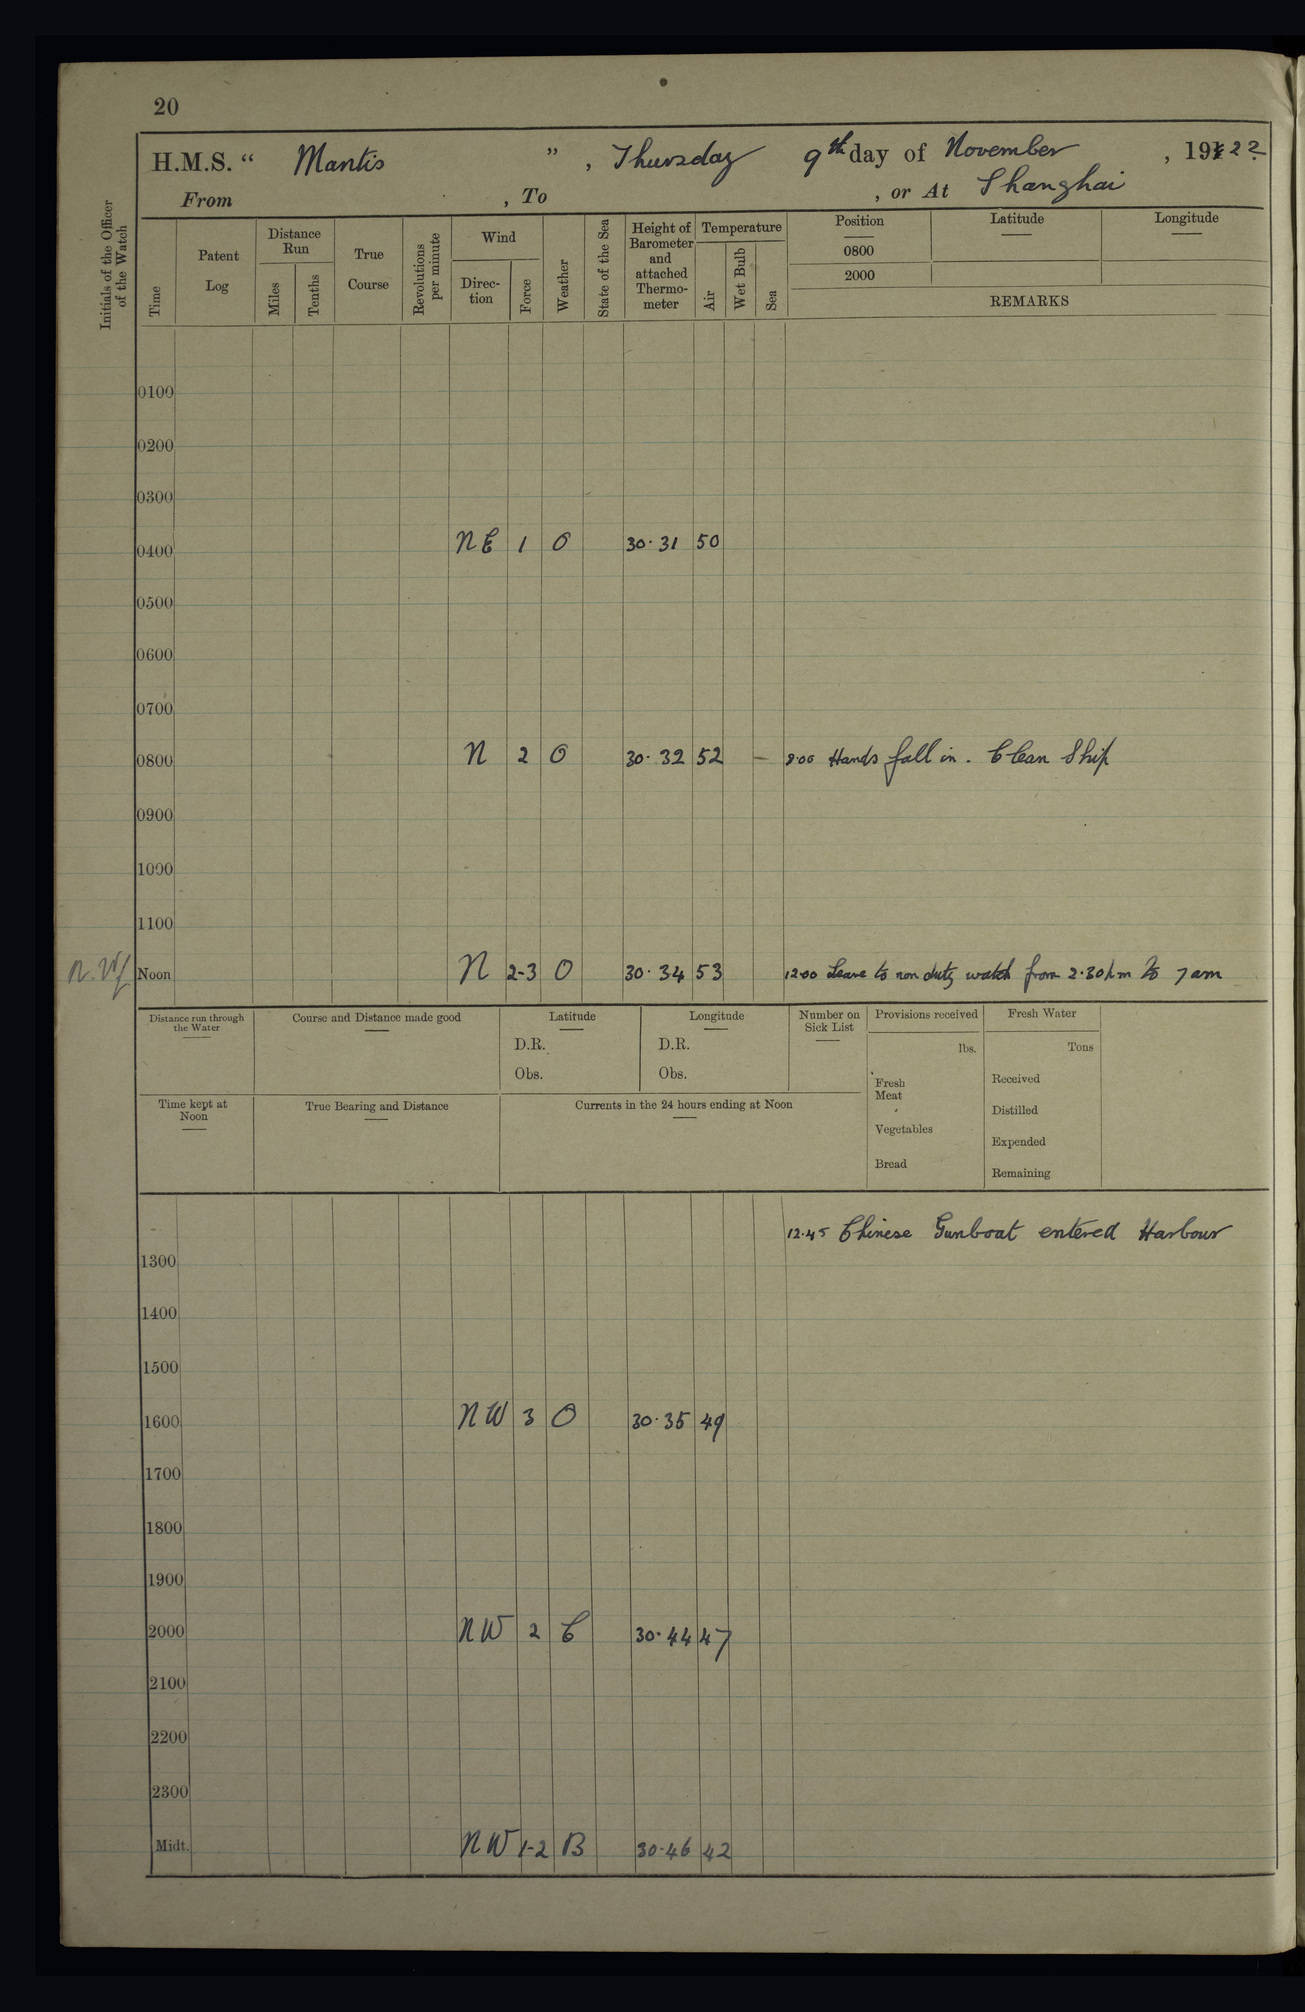 20
H.M.S. “ Mantis ” , Thursday 9th day of November , 1922
From , To , or At Shanghai
Initials of the Officer of the Watch
Time
Patent Log
Distance Run
Miles
Tenths
True Course
Revolutions per minute
Wind
Direc-tion
Force
Weather
State of the Sea
Height of Barometer and attached Thermo-meter
Temperature
Air
Wet Bulb
Sea
Position Latitude Longitude
0800
2000
REMARKS
0100
0200
0300
0400 NE 1 O 30·31 50
0500
0600
0700
0800 N 2 O 30·32 52 — 8·00 Hands fall in. Clean Ship
0900
1000
1100
Noon N 2-3 O 30·34 53 12·00 Leave to non duty watch from 2·30pm to 7am
Distance run through the Water
Course and Distance made good
Latitude
D.R.
Obs.
Longitude
D.R.
Obs.
Number on Sick List
Provisions received
lbs.
Fresh Meat
Vegetables
Bread
Fresh Water
Tons
Received
Distilled
Expended
Remaining
Time kept at Noon
True Bearing and Distance
Currents in the 24 hours ending at Noon
12·45 Chinese Gunboat entered Harbour
1300
1400
1500
1600 NW 3 O 30·35 49
1700
1800
1900
2000 NW 2 C 30·44 47
2100
2200
2300
Midt. NW 1-2 B 30·46 42